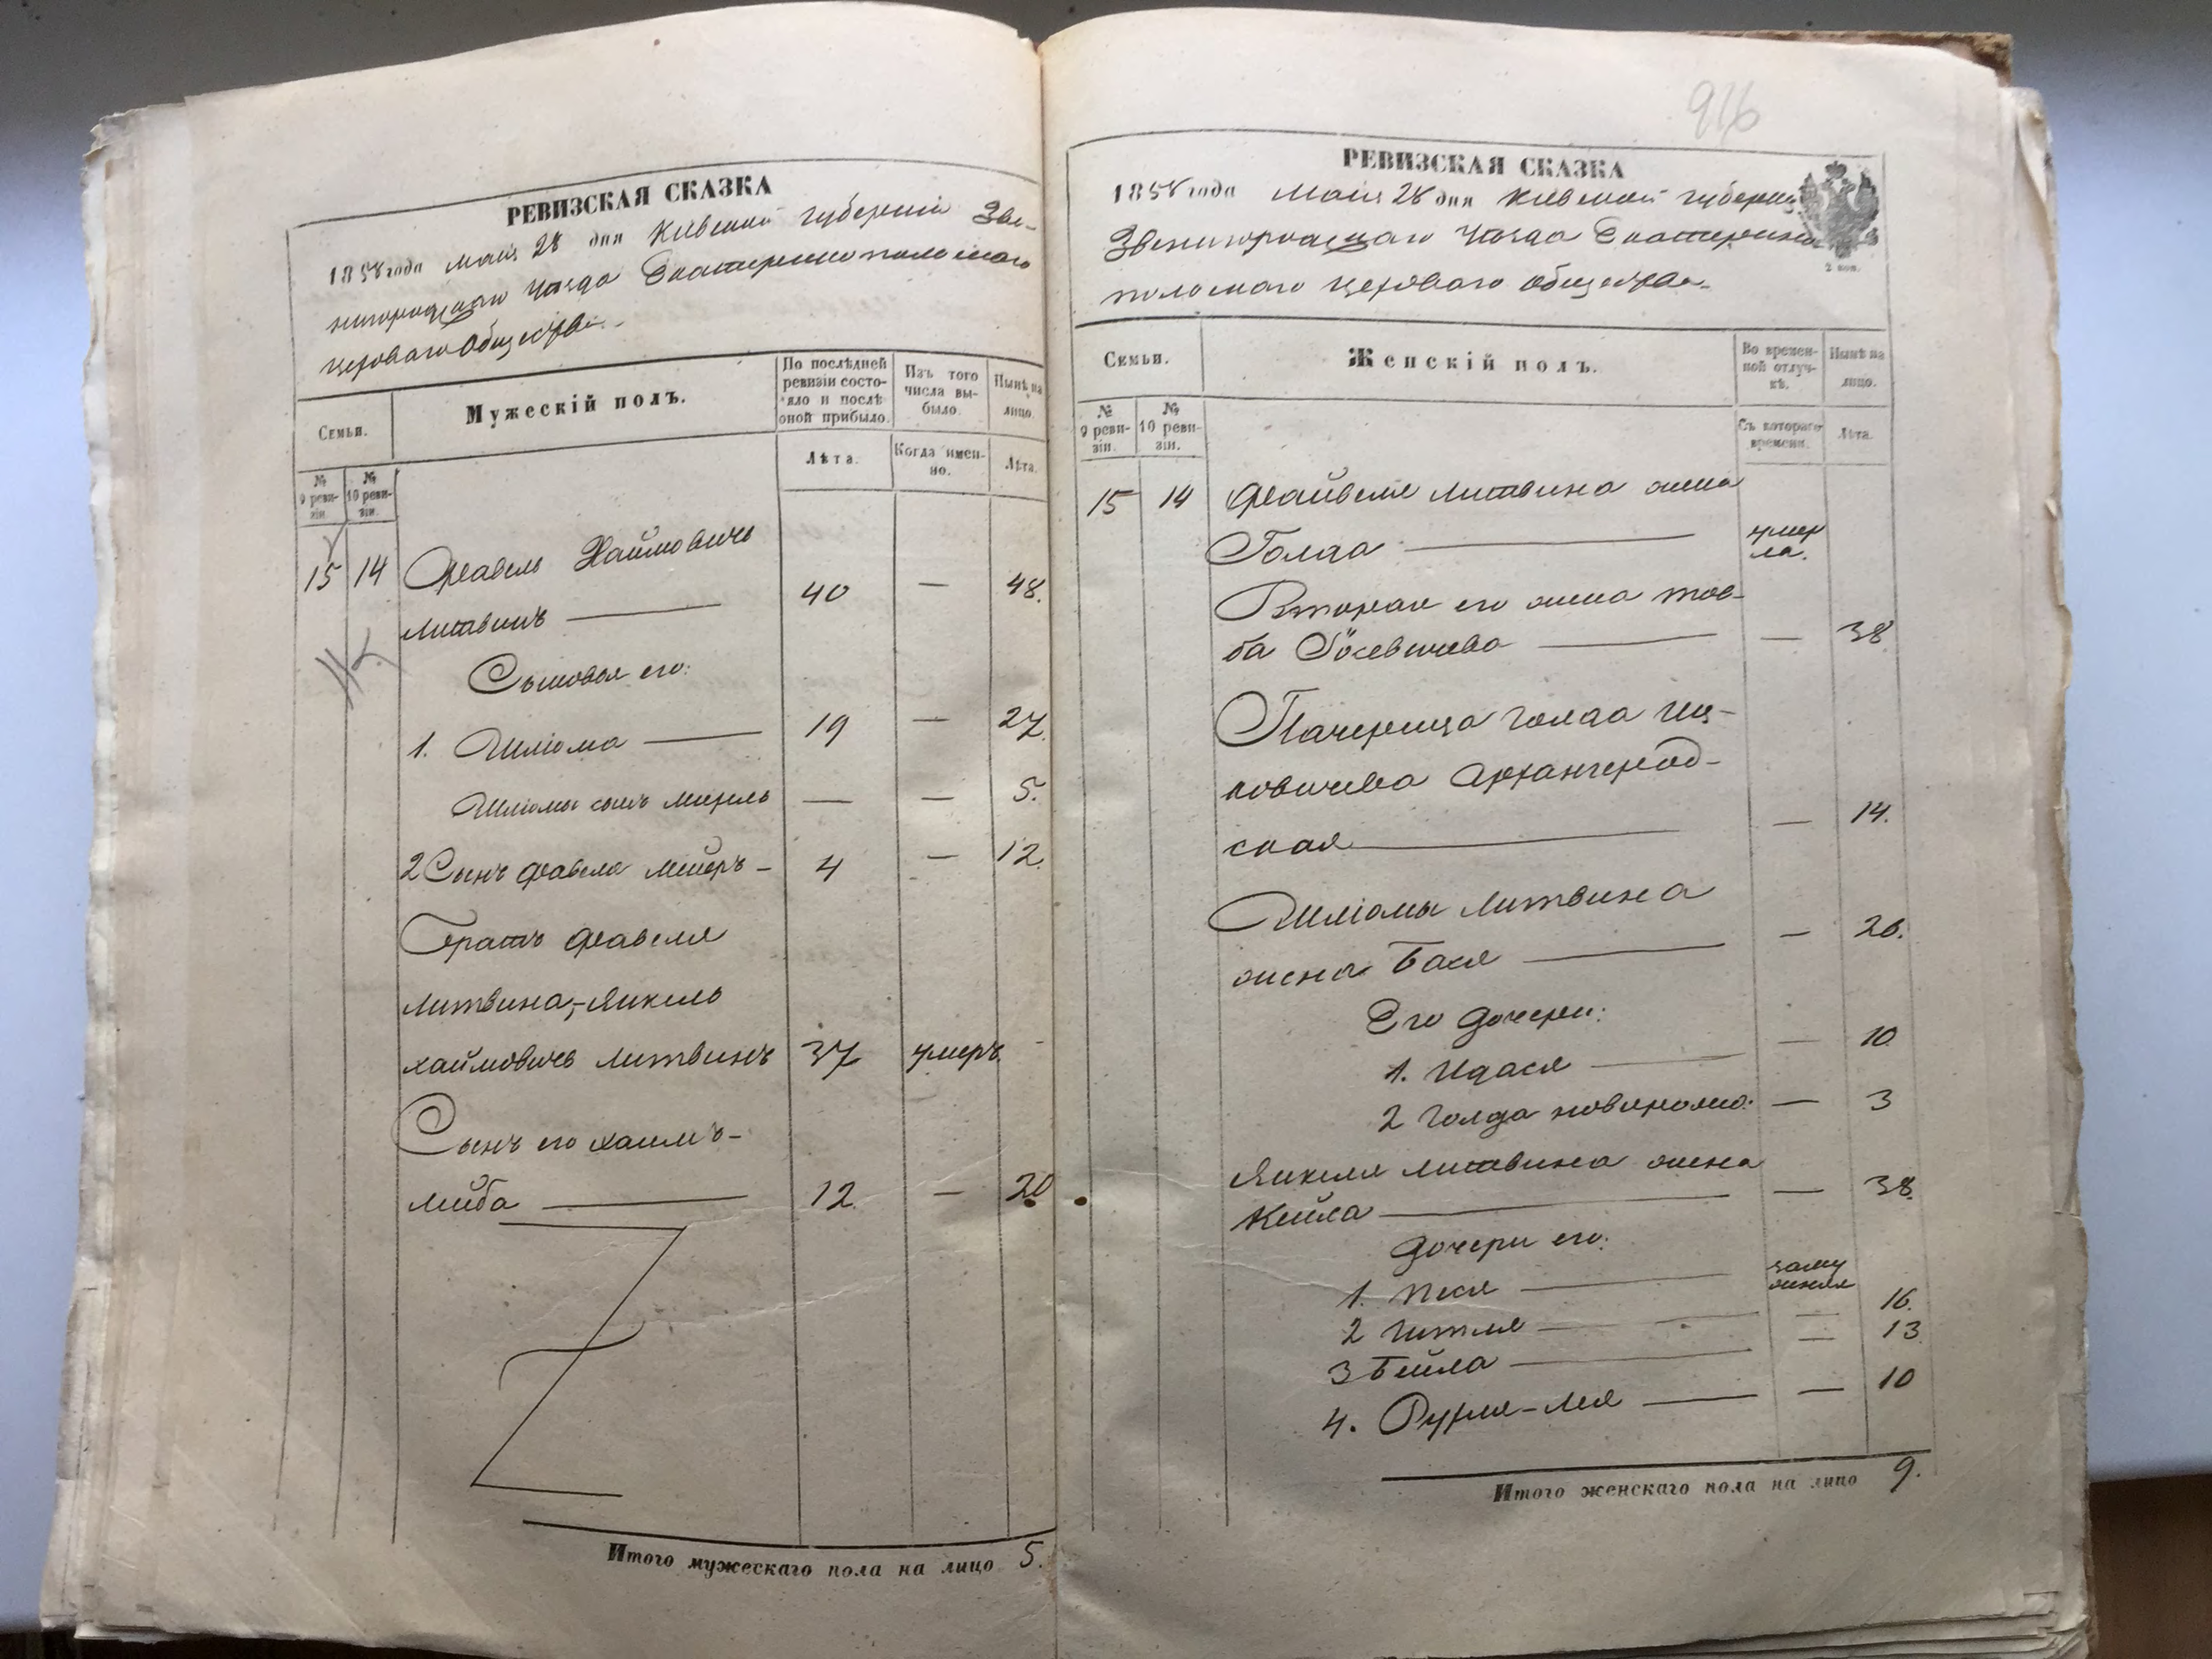 РЕВИЗСКАЯ СКАЗКА
1858 года Маія 28 дня Кіевской губерніи Зве-
нигородскаго Уѣзда Екатеринопольскаго
цеховаго Общества.
Семьи.
Мужескій полъ.
По послѣдней ревизіи состо-яло и послѣ оной прибыло.
Изъ того числа вы-было.
Нынѣ на лицо.
№ 9 реви-зіи.
№ 10 реви-зіи.
Лѣта.
Когда имен-но.
Лѣта.
15 14 Фавель Хаимовичъ
Литвинъ 40 — 48.
Сыновья его:
1. Шліома 19 — 27.
Шліомы сынъ — — 5.
2 Сынъ Фавеля Меиеръ - 4 — 12.
Братъ Фавеля
Литвина,-Янкель
Хаймовичъ Литвинъ 37 умеръ
Сынъ его Хаимъ-
Лейба 12. — 20
Итого мужескаго пола на лицо 5.
916
РЕВИЗСКАЯ СКАЗКА
1858 года Маія 28 дня Кіевской губерніи
Звенигородскаго Уѣзда Екатерино
польскаго цеховаго общества.
2 коп.
Семьи.
Женскій полъ.
Во времен-ной отлуч-кѣ.
Нынѣ на лицо.
№ 9 реви-зіи.
№ 10 реви-зіи.
Съ котораго времени.
Лѣта.
15 14 Файвеля Литвина жена
Голда умер
ла.
Вторая его жена Тов-
ба Іосевичева — 38
Пачерица Голда Иц-
ковичева Архангерод-
ская — 14.
Шліомы Литвина
жена Бася — 26.
Его дочери:
1. Идася — 10
2 Голда новорожд: — 3
Янкеля Литвина жена
Кейла — 38.
Дочери его:
1. Песя заму
жняя
2 Гитля — 16.
3 Бейла — 13
4. Рухля-Лея — 10
Итого женскаго пола на лицо 9.